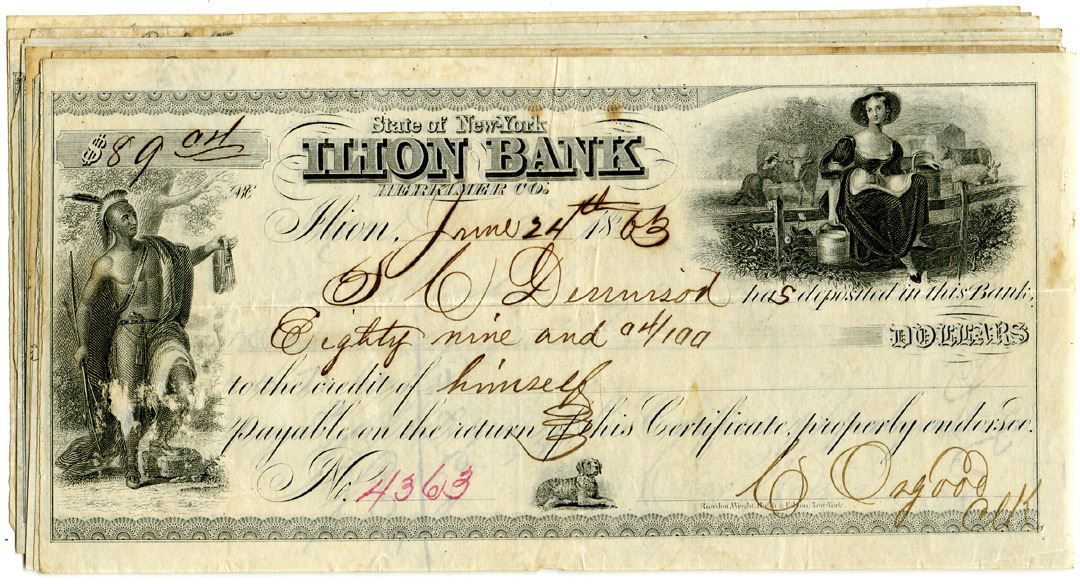 $89 04
State of New-York
ILION BANK
HERKIMER CO:
Ilion, June 24th 1863
S C Dennison has deposited in this Bank,
Eighty nine and 04/100 DOLLARS
to the credit of himself
payable on the return of this Certificate, properly endorsed.
No. 4363
C Osgood
Rawdon, Wright, Hatch & Edson, New-York